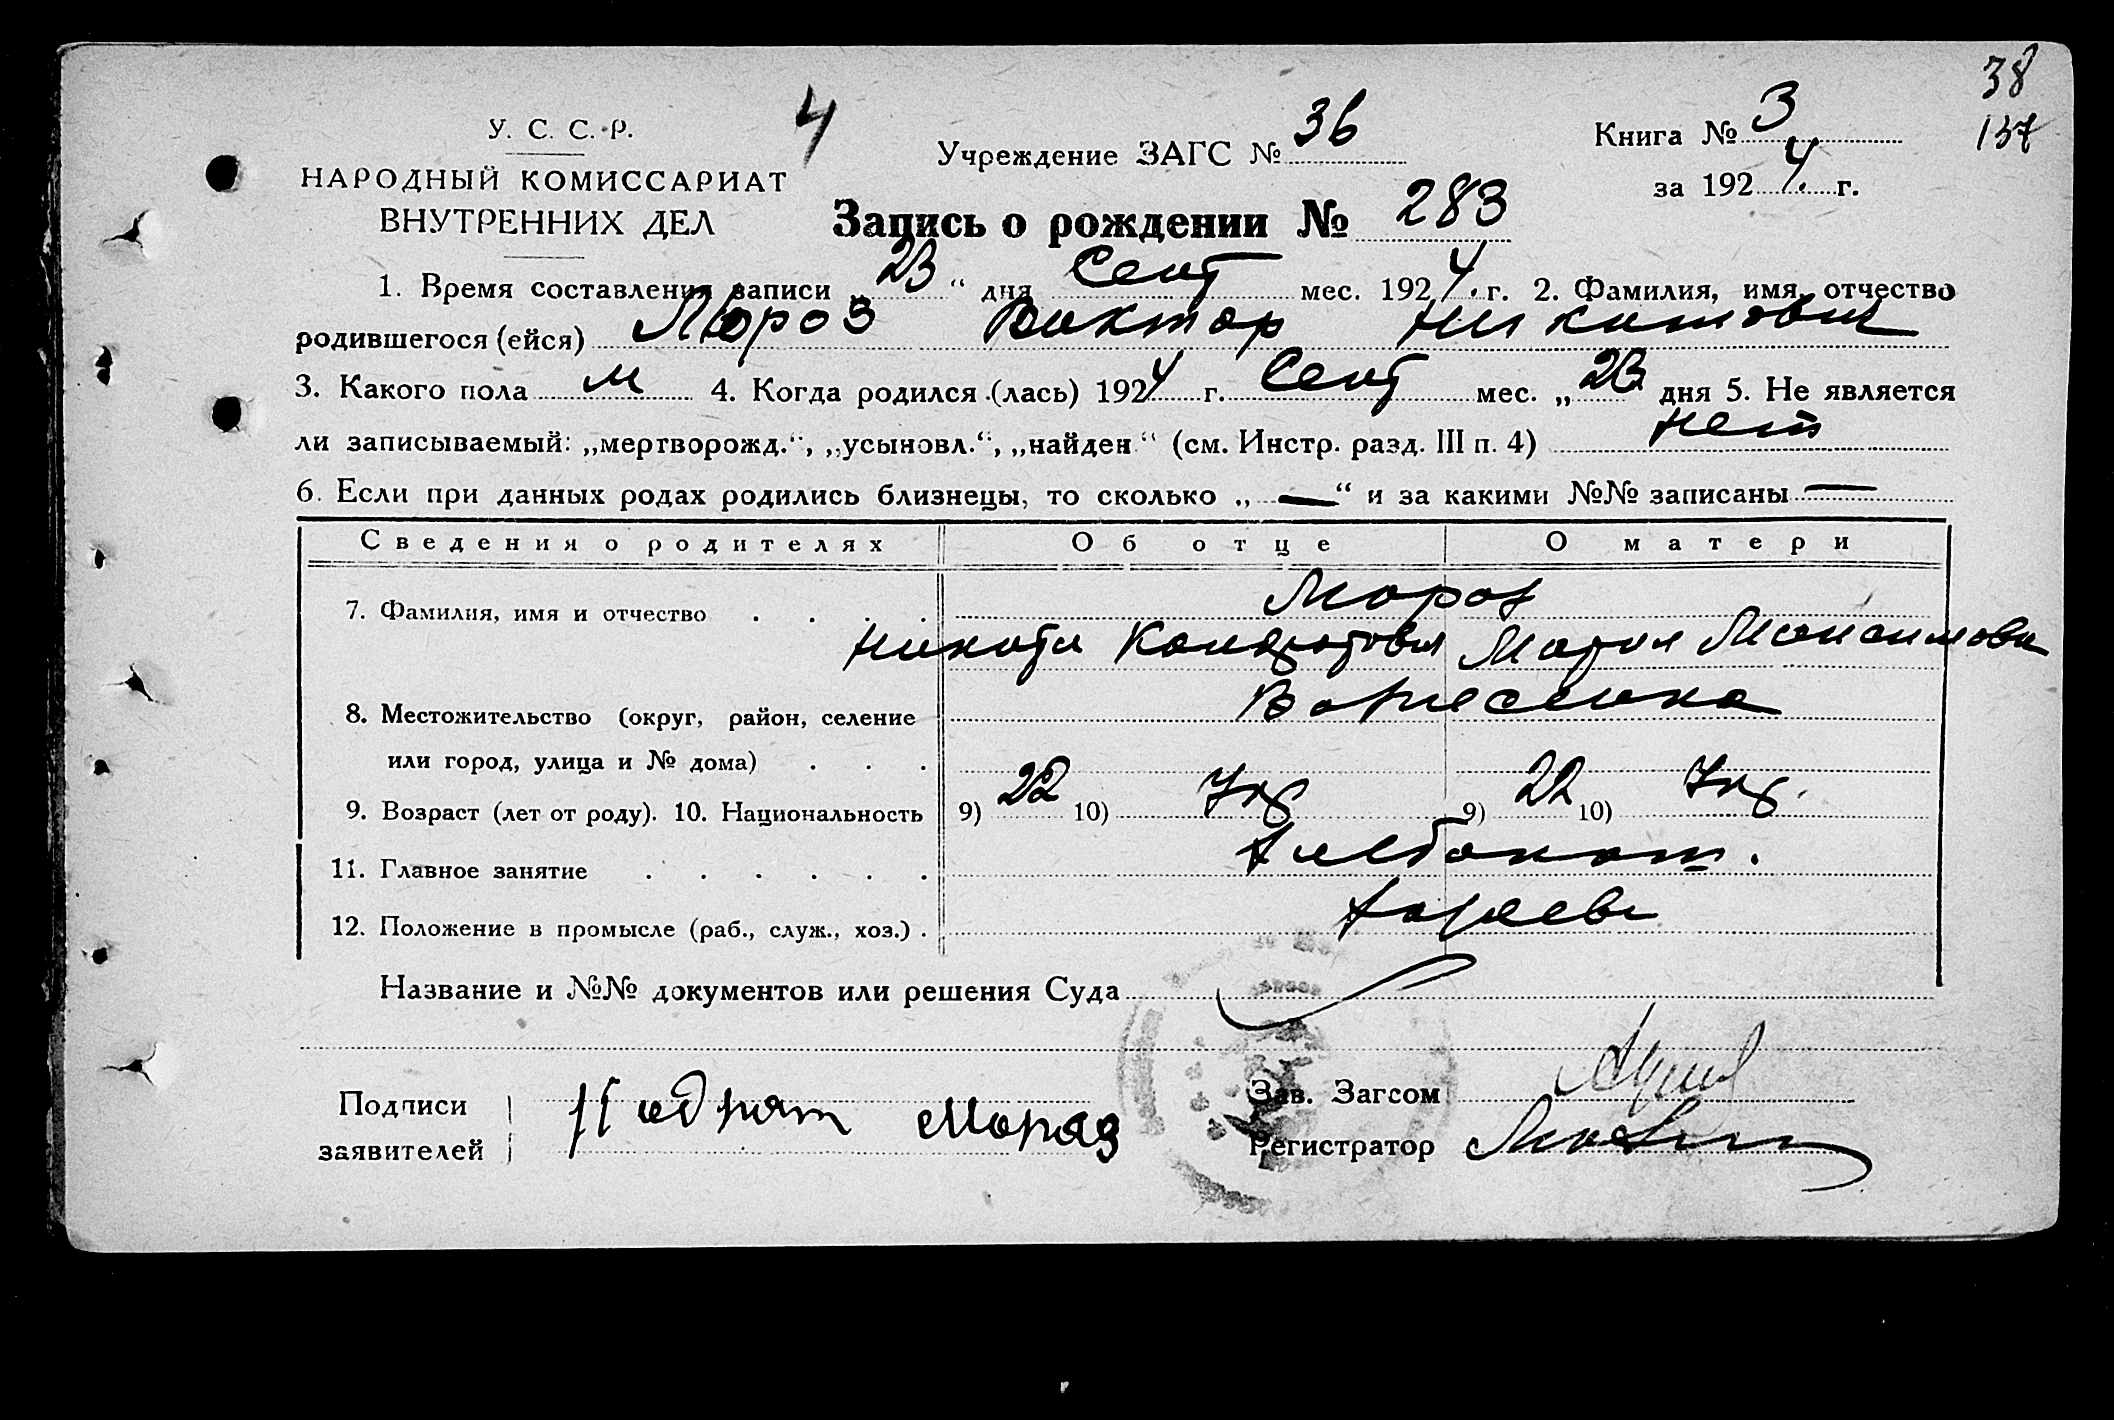 38
137
У. С. С. Р.
4
Учреждение ЗАГС № 36
Книга № 3
НАРОДНЫЙ КОМИССАРИАТ
ВНУТРЕННИХ ДЕЛ
за 1924 г.
Запись о рождении № 283
1. Время составления записи „23“ дня Сент мес. 1924 г. 2. Фамилия, имя, отчество
родившегося (ейся) Мороз Виктор Никитович
3. Какого пола м 4. Когда родился (лась) 1924 г. Сент мес. „23 дня 5. Не является
ли записываемый: „мертворожд.“, „усыновл.“, „найден“ (см. Инстр. разд. III п. 4) нет
6. Если при данных родах родились близнецы, то сколько „—“ и за какими №№ записаны —
Сведения о родителях Об отце О матери
7. Фамилия, имя и отчество . . . . Мороз
Никита Кондратович Мария Максимовн
8. Местожительство (округ, район, селение
или город, улица и № дома) . . .
9. Возраст (лет от роду). 10. Национальность 9) 22 10) Укр 9) 22 10) Укр.
11. Главное занятие . . . . . . Хлебопаш.
12. Положение в промысле (раб., служ., хоз.) . Хозяева
Название и №№ документов или решения Суда
Подписи
заявителей
Мороз
Зав. Загсом
Регистратор